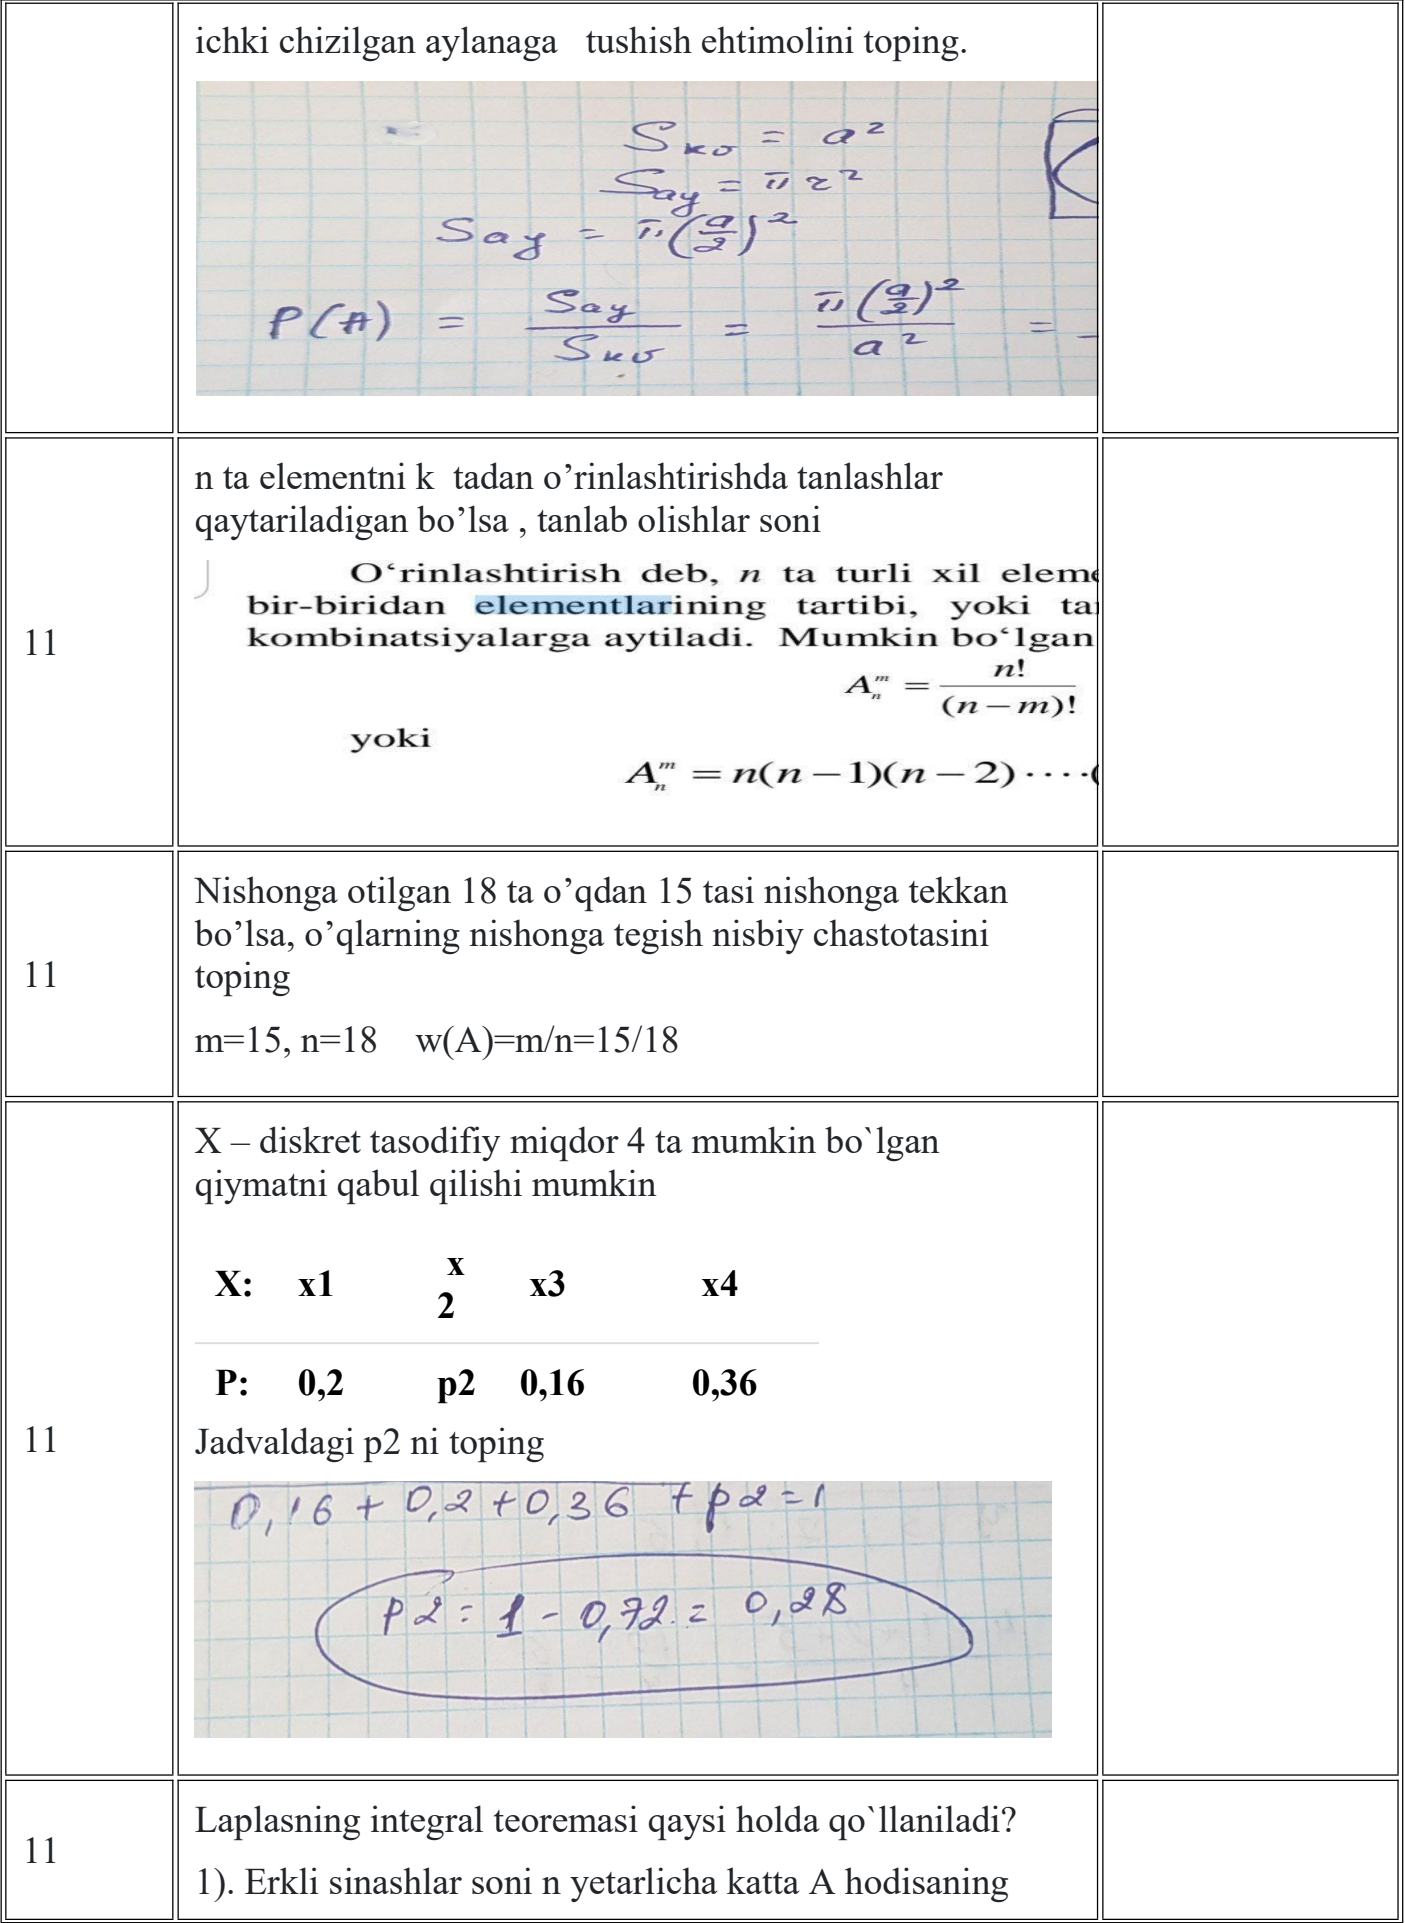 ichki chizilgan aylanaga tushish ehtimolini toping.
Sкв = a²
Say = πr²
Say = π(a/2)²
P(A) = Say/Sкв = π(a/2)²/a² =
11
n ta elementni k tadan o’rinlashtirishda tanlashlar
qaytariladigan bo’lsa , tanlab olishlar soni
O‘rinlashtirish deb, n ta turli xil
bir-biridan elementlarining tartibi, yoki
kombinatsiyalarga aytiladi. Mumkin bo‘lgan
Aₙᵐ = n!/(n – m)!
yoki
Aₙᵐ = n(n – 1)(n – 2) ····(
11
Nishonga otilgan 18 ta o’qdan 15 tasi nishonga tekkan
bo’lsa, o’qlarning nishonga tegish nisbiy chastotasini
toping
m=15, n=18 w(A)=m/n=15/18
11
X – diskret tasodifiy miqdor 4 ta mumkin bo`lgan
qiymatni qabul qilishi mumkin
X: x1 x2 x3 x4
P: 0,2 p2 0,16 0,36
Jadvaldagi p2 ni toping
0,16 + 0,2 + 0,36 + p2 = 1
p2 = 1 - 0,72 = 0,28
11
Laplasning integral teoremasi qaysi holda qo`llaniladi?
1). Erkli sinashlar soni n yetarlicha katta A hodisaning